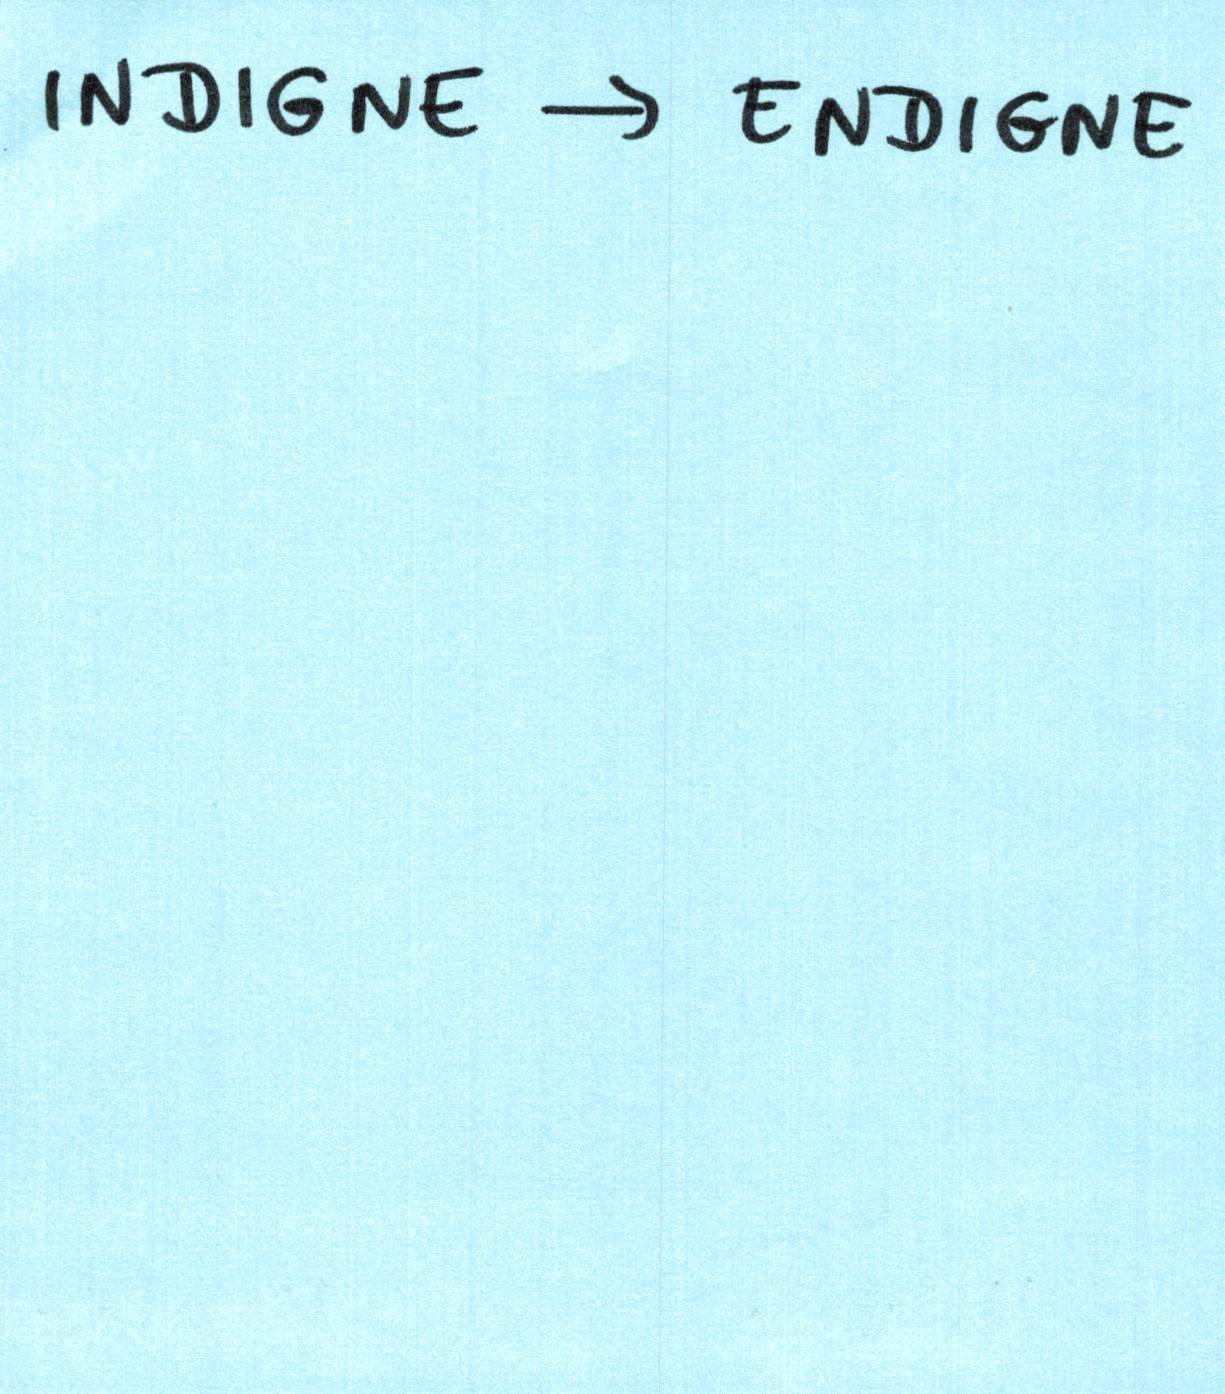 INDIGNE → ENDIGNE